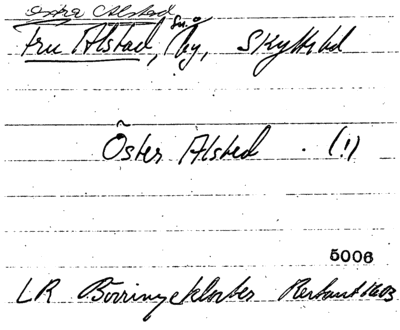 Östra Alstad
Fru Alstad, by, Skytts hd
Öster Alsted . (!)
5006
LR Börringekloster 1603